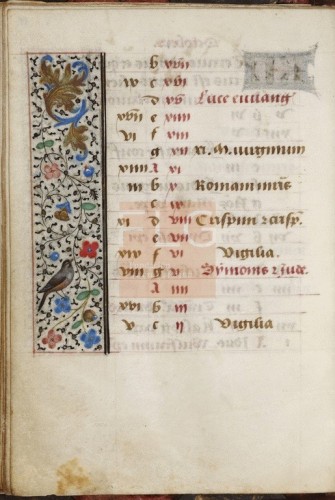 b xvii
c xvi
d xv Luce euuang
xvii e xiiii
vi f xiii
g xii xi. M. uirginum
xiiii A xi
iii b x Romani
c ix
xi d viii Crispini z crisp.
e vii
xix f vi Vigilia.
viii g v Symonis z iude.
A iiii
xvi b iii
v c ii Vigilia